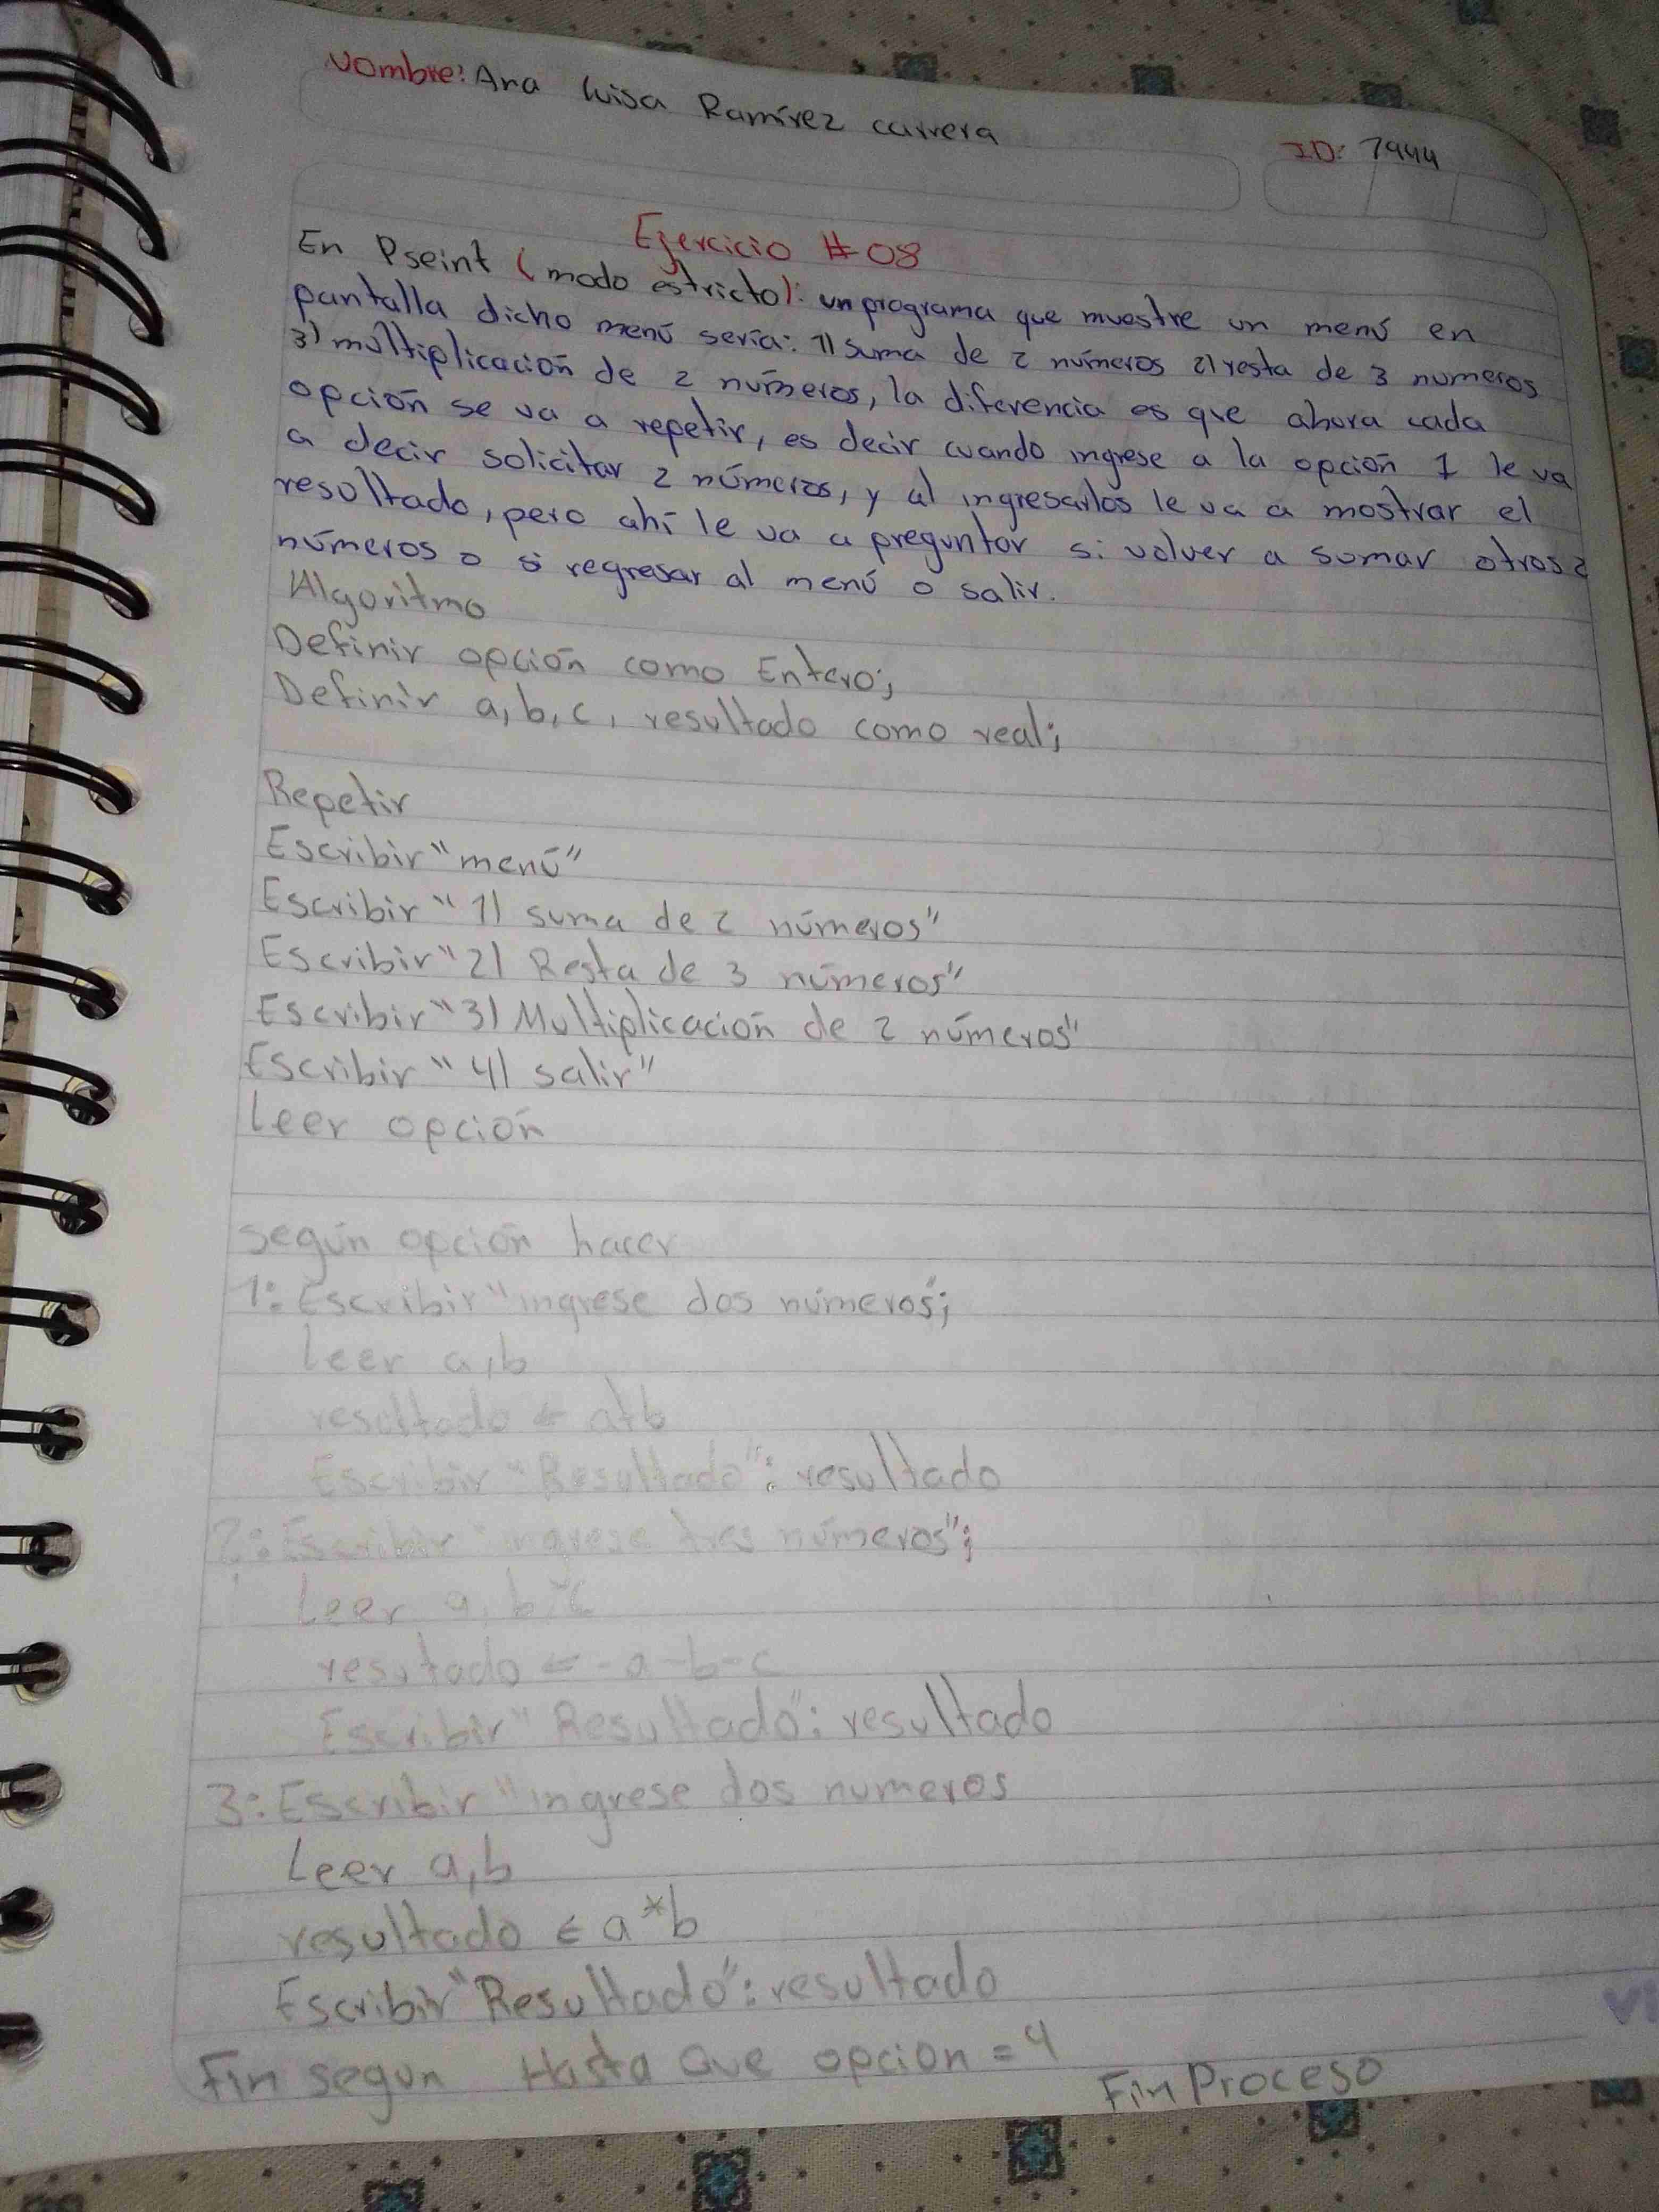 Nombre: Ana Luisa Ramírez carrera
ID: 7944
Ejercicio #08
En Pseint (modo estricto): un programa que muestre un menú en
pantalla dicho menú sería: 1) suma de 2 números 2) resta de 3 numeros
3) multiplicación de 2 números, la diferencia es que ahora cada
opción se va a repetir, es decir cuando ingrese a la opción 1 le va
a decir solicitar 2 números, y al ingresarlos le va a mostrar el
resultado, pero ahí le va a preguntar si volver a sumar otros 2
números o si regresar al menú o salir.
Algoritmo
Definir opción como Entero;
Definir a, b, c, resultado como real;
Repetir
Escribir "menú"
Escribir "1) suma de 2 números"
Escribir "2) Resta de 3 números"
Escribir "3) Multiplicación de 2 números"
Escribir "4) salir"
Leer opción
según opción hacer
1: Escribir "ingrese dos números";
Leer a, b
resultado ← a+b
Escribir "Resultado": resultado
2: Escribir "ingrese tres números";
Leer a, b, c
resutado ← -a-b-c
Escribir "Resultado": resultado
3: Escribir "ingrese dos numeros
Leer a, b
resultado ← a*b
Escribir "Resultado": resultado
Fin segun Hasta Que opcion = 4
Fin Proceso